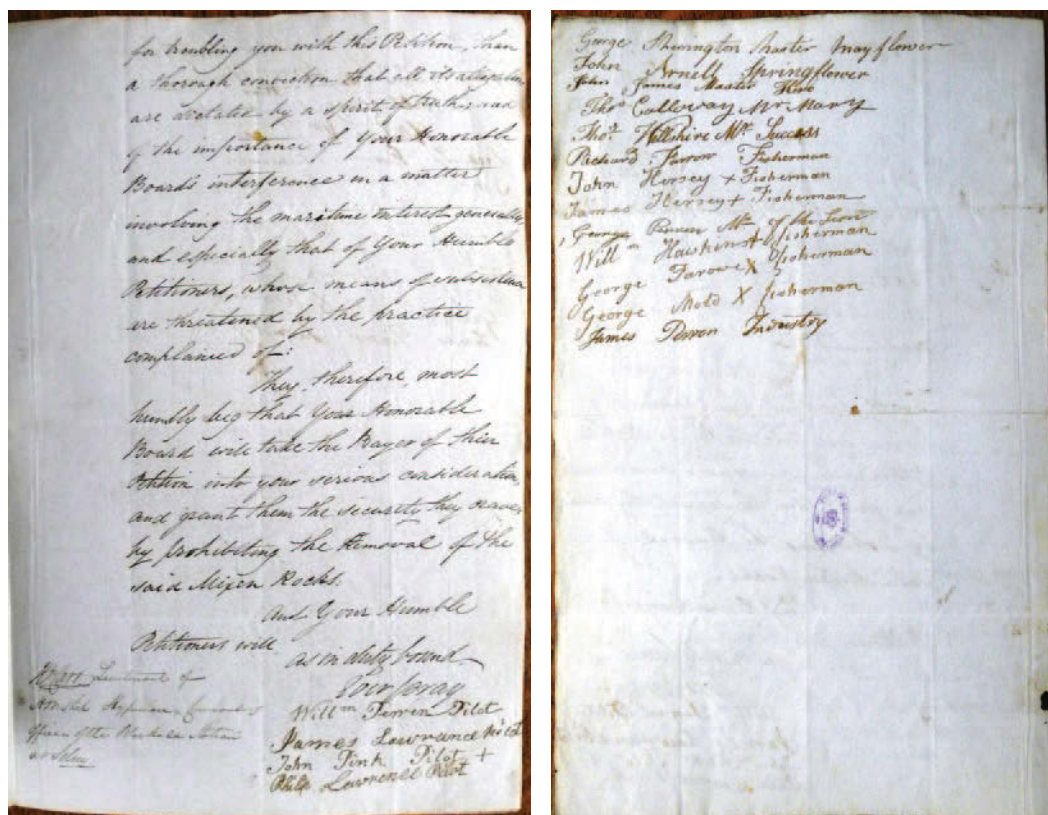 for troubling you with this Petition, than
a thorough conviction that all its allegations
are dictated by a spirit of truth, and
of the importance of Your Honorable
Boards interference in a matter
involving the maritime interest generally,
and especially that of Your Humble
Petitioners, whose means of subsistence
are threatened by the practice
complained of:
They, therefore, most
humbly beg that Your Honorable
Board will take the Prayer of thier
Petition into your serious consideration,
and grant them the security they crave
by prohibiting the Removal of the
said Mixen Rocks.
And Your Humble
Petitioners will
as in duty bound
Ever Pray
Willm Perren Pilot
James Lawrance Pilot
John Pink Pilot +
Philp Lawrence Pilot
Lieutenant of
Officer of the Station
at Selsey
George Master Mayflower
John Arnell Springflower
John James Master Hero
Thos Calloway Mr Mary
Thos Willshire Mr Success
Richard Farrow Fisherman
John Hersey + Fisherman
James Hersey + Fisherman
George Perren Mr of the Lion
Willm Hawkins + fisherman
George Farowe X fisherman
George Mold X fisherman
James Perren Industry